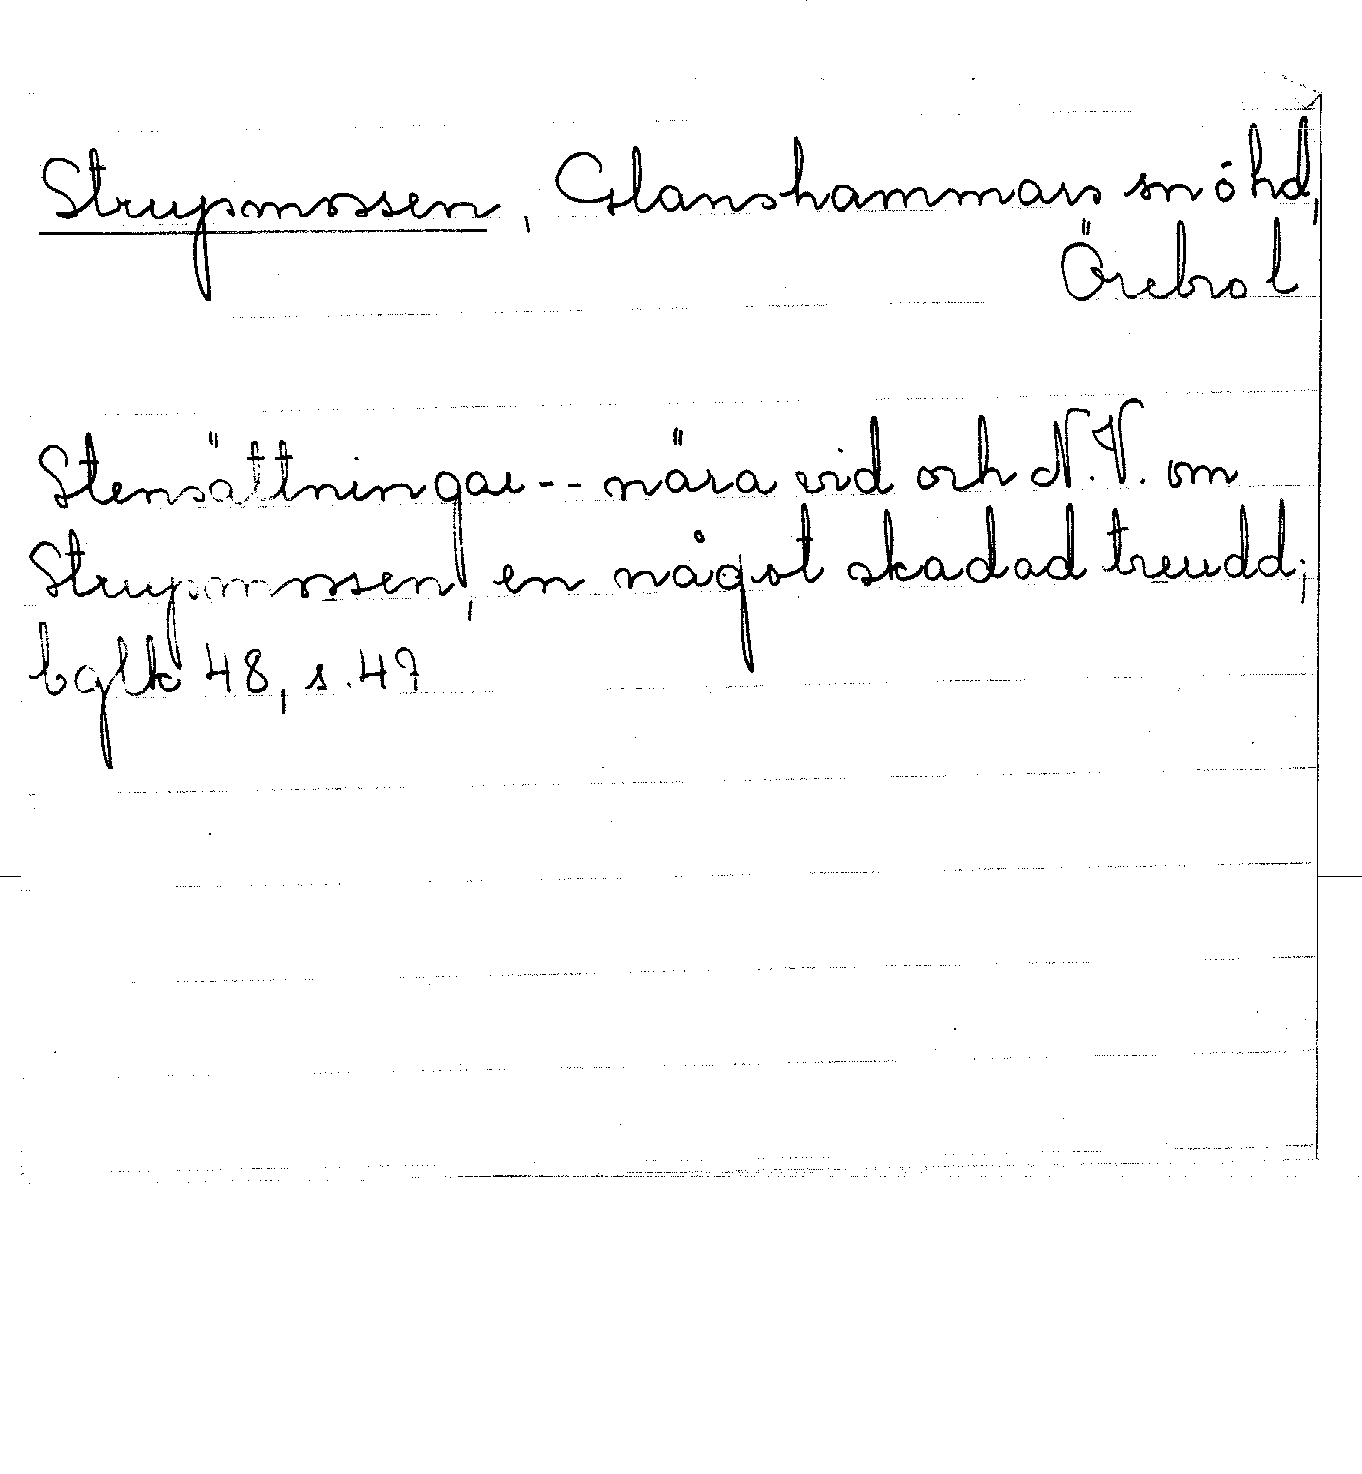 Strupmossen, Glanshammars sn ö hd,
Örebro l
Stensättningar -- nära vid och N.V. om
Strupmossen, en något skadad treudd;
bglk 48, s. 47